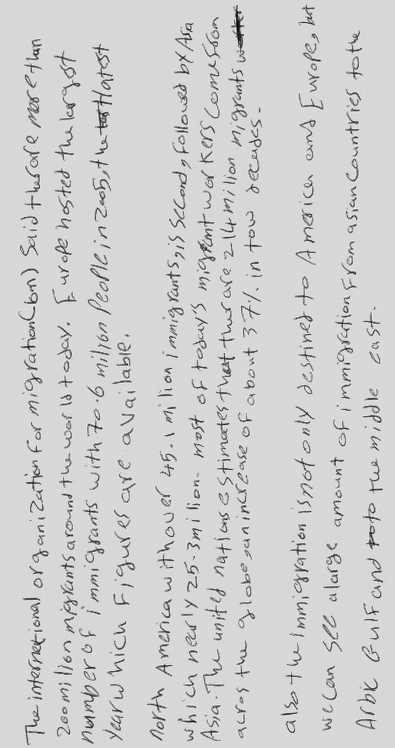 The international organization for migration(Iom) said ther are more than
200 million migrants around the world today. Europe hosted the largest
number of immigrants with 70.6 million People in 2005, the latest
year which figures are available.
north America with over 45.1 million immigrants, is second, followed by Asia
which nearly 25.3 million. most of today's migrant workers come from
Asia. The united nations estimates that ther are 214 million migrants
acros the globe, an increase of about 37% in tow decades.
also the immigration is not only destined to America and Europe, but
we can see alarge amount of immigration from asian countries to the
Arbic Gulf and to the middle east.